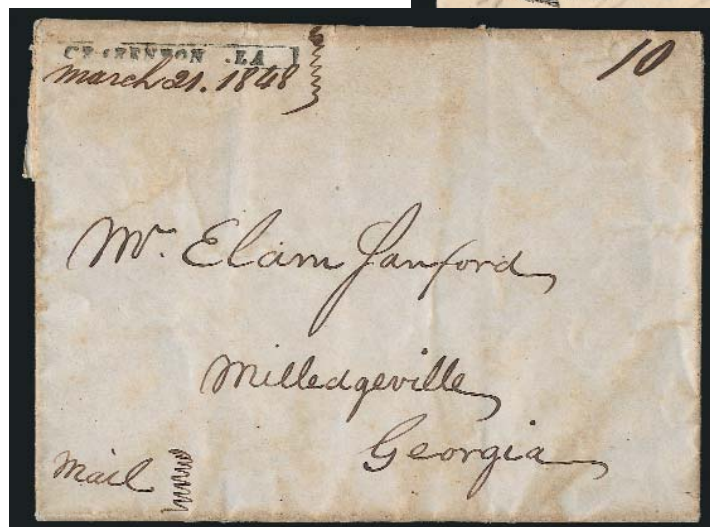 LA 10
March 21. 1848
Mr. Elam Sanford
Milledgeville
Georgia
Mail